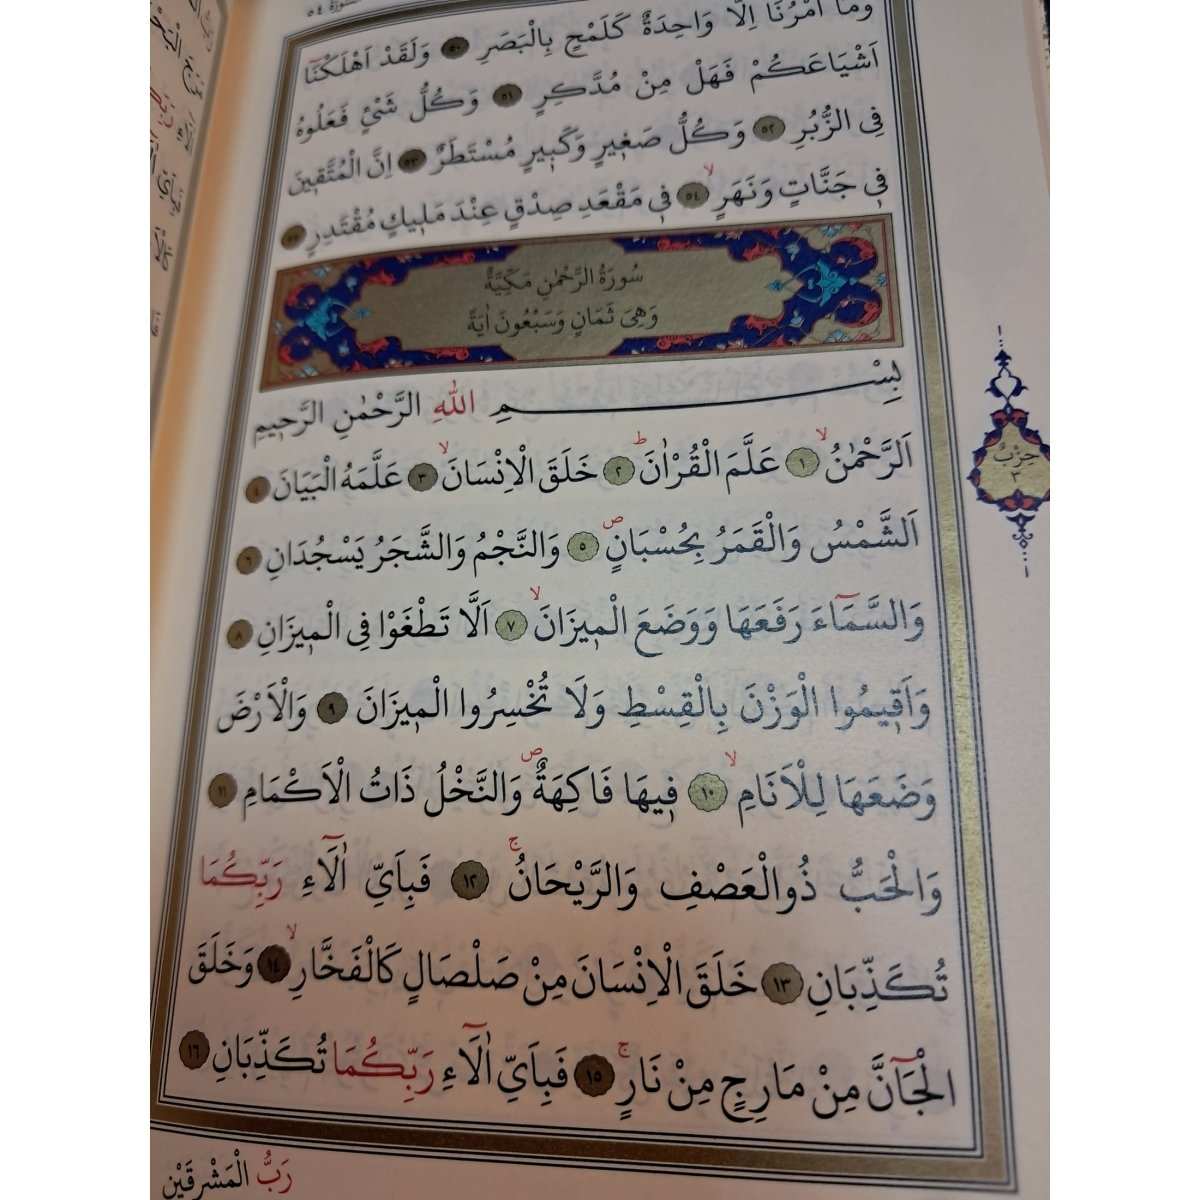 سورة ٥٤
وَمَا اَمْرُنَا اِلَّا وَاحِدَةٌ كَلَمْحٍ بِالْبَصَرِ ٥٠ وَلَقَدْ اَهْلَكْنَٓا
اَشْيَاعَكُمْ فَهَلْ مِنْ مُدَّكِرٍ ٥١ وَكُلُّ شَيْءٍ فَعَلُوهُ
فِى الزُّبُرِ ٥٢ وَكُلُّ صَغٖيرٍ وَكَبٖيرٍ مُسْتَطَرٌ ٥٣ اِنَّ الْمُتَّقٖينَ
فٖى جَنَّاتٍ وَنَهَرٍۙ ٥٤ فٖى مَقْعَدِ صِدْقٍ عِنْدَ مَلٖيكٍ مُقْتَدِرٍ ٥٥
سُورَةُ الرَّحْمٰنِ مَكِّيَّةٌ
وَهِىَ ثَمَانٍ وَسَبْعُونَ اٰيَةً
بِسْمِ اللّٰهِ الرَّحْمٰنِ الرَّحٖيمِ
اَلرَّحْمٰنُۙ ١ عَلَّمَ الْقُرْاٰنَؕ ٢ خَلَقَ الْاِنْسَانَۙ ٣ عَلَّمَهُ الْبَيَانَ ٤
حِزْبٌ
٣
اَلشَّمْسُ وَالْقَمَرُ بِحُسْبَانٍࣕ ٥ وَالنَّجْمُ وَالشَّجَرُ يَسْجُدَانِ ٦
وَالسَّمَٓاءَ رَفَعَهَا وَوَضَعَ الْمٖيزَانَۙ ٧ اَلَّا تَطْغَوْا فِى الْمٖيزَانِ ٨
وَاَقٖيمُوا الْوَزْنَ بِالْقِسْطِ وَلَا تُخْسِرُوا الْمٖيزَانَ ٩ وَالْاَرْضَ
وَضَعَهَا لِلْاَنَامِۙ ١٠ فٖيهَا فَاكِهَةٌࣕ وَالنَّخْلُ ذَاتُ الْاَكْمَامِ ١١
وَالْحَبُّ ذُوالْعَصْفِ وَالرَّيْحَانُۚ ١٢ فَبِاَىِّ اٰلَٓاءِ رَبِّكُمَا
تُكَذِّبَانِ ١٣ خَلَقَ الْاِنْسَانَ مِنْ صَلْصَالٍ كَالْفَخَّارِۙ ١٤ وَخَلَقَ
الْجَٓانَّ مِنْ مَارِجٍ مِنْ نَارٍۚ ١٥ فَبِاَىِّ اٰلَٓاءِ رَبِّكُمَا تُكَذِّبَانِ ١٦
رَبُّ الْمَشْرِقَيْنِ